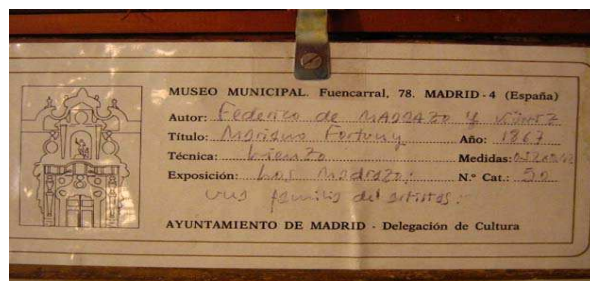 MUSEO MUNICIPAL. Fuencarral, 78. MADRID-4 (España)
Autor: Federico de MADRAZO y
Título: Mariano Fortuny Año: 1867
Técnica: Lienzo Medidas:
Exposición: Los Madrazo: N.º Cat.: 50
una familia de artistas.
AYUNTAMIENTO DE MADRID - Delegación de Cultura